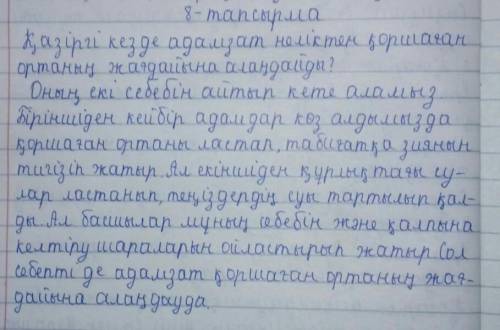 8-тапсырма
Қазіргі кезде адамзат неліктен қоршаған
ортаның жағдайына алаңдайды?
Оның екі себебін айтып кете аламыз
Біріншіден кейбір адамдар көз алдымызда
қоршаған ортаны ластап, табиғатқа зиянын
тигізіп жатыр. Ал екіншіден құрлықтағы су-
лар ластанып, теңіздердің суы тартылып қал-
ды. Ал башылар мұның себебін және қалпына
келтіру шараларын ойластырып жатыр. Сол
себепті де адамзат қоршаған ортаның жағ-
дайына алаңдауда.